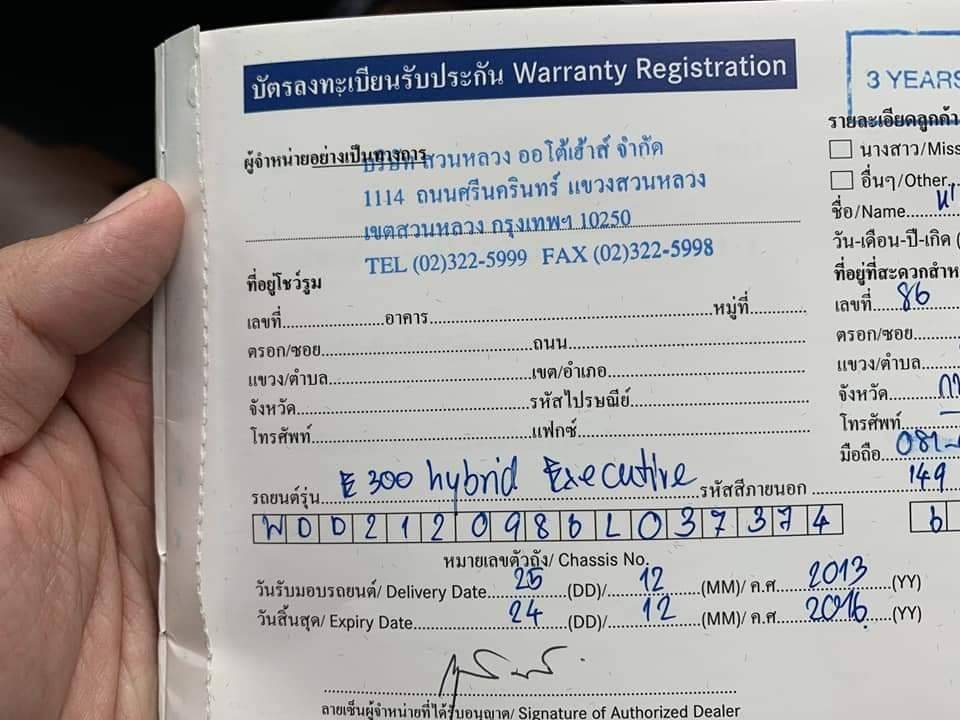 บัตรลงทะเบียนรับประกัน Warranty Registration
3 YEARS
ผู้จำหน่ายอย่างเป็นทางการ
บริษัท สวนหลวง ออโต้เฮ้าส์ จำกัด
1114 ถนนศรีนครินทร์ แขวงสวนหลวง
เขตสวนหลวง กรุงเทพฯ 10250
TEL (02)322-5999 FAX (02)322-5998
ที่อยู่โชว์รูม
เลขที่ อาคาร หมู่ที่
ตรอก/ซอย ถนน
แขวง/ตำบล เขต/อำเภอ
จังหวัด รหัสไปรษณีย์
โทรศัพท์ แฟกซ์
รถยนต์รุ่น E 300 hybrid Executive รหัสสีภายนอก 149
WDD2120986L037374
หมายเลขตัวถัง/ Chassis No.
วันรับมอบรถยนต์/ Delivery Date 25 (DD)/ 12 (MM)/ ค.ศ 2013 (YY)
วันสิ้นสุด/ Expiry Date 24 (DD)/ 12 (MM)/ ค.ศ 2016 (YY)
ลายเซ็นผู้จำหน่ายที่ได้รับอนุญาต/ Signature of Authorized Dealer
รายละเอียดลูกค้า
นางสาว/Miss
อื่นๆ/Other
ชื่อ/Name
วัน-เดือน-ปี-เกิด
ที่อยู่ที่สะดวก
เลขที่ 86
ตรอก/ซอย
แขวง/ตำบล
จังหวัด
โทรศัพท์
มือถือ 081-
6